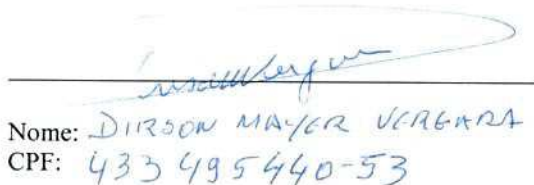 Nome: DIRSON MAYER VERGARA
CPF: 433495440-53